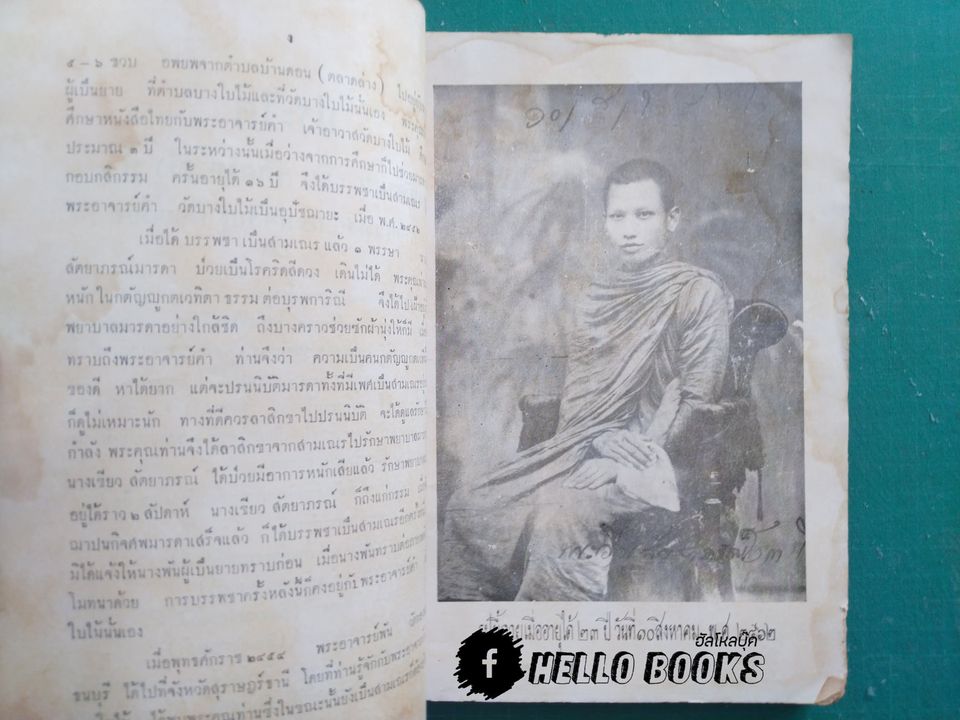 ๕ – ๖ ขวบ อพยพจากตำบลบ้านดอน ( ตลาดล่าง ) ไปอยู่กับ
ผู้เป็นยาย ที่ตำบลบางใบไม้และที่วัดบางใบไม้นั้นเอง
ศึกษาหนังสือไทยกับพระอาจารย์คำ เจ้าอาวาสวัดบางใบไม้
ประมาณ ๓ ปี ในระหว่างนั้นเมื่อว่างจากการศึกษาก็ไปช่วย
กอบกสิกรรม ครั้นอายุได้ ๑๖ ปี จึงได้บรรพชาเป็นสามเณร
พระอาจารย์คำ วัดบางใบไม้เป็นอุปัชฌายะ เมื่อ พ.ศ. ๒๔๕๒
เมื่อได้ บรรพชา เป็นสามเณร แล้ว ๑ พรรษา
สัตยาภรณ์มารดา ป่วยเป็นโรคริดสีดวง เดินไม่ได้
หนัก ในกตัญญูกตเวทิตา ธรรม ต่อบุรพการิณี
พยาบาลมารดาอย่างใกล้ชิด ถึงบางคราวช่วยซักผ้านุ่งให้ก็มี
ทราบถึงพระอาจารย์คำ ท่านจึงว่า ความเป็นคนกตัญญูกตเวที
ของดี หาได้ยาก แต่จะปรนนิบัติมารดาทั้งที่มีเพศเป็นสามเณร
ก็ดูไม่เหมาะนัก ทางที่ดีควรลาสิกขาไปปรนนิบัติ จะได้ดูแลรักษา
กำลัง พระคุณท่านจึงได้ลาสิกขาจากสามเณรไปรักษาพยาบาล
นางเขียว สัตยาภรณ์ ได้ป่วยมีอาการหนักเสียแล้ว
อยู่ได้ราว ๒ สัปดาห์ นางเขียว สัตยาภรณ์ ก็ถึงแก่กรรม
ฌาปนกิจศพมารดาเสร็จแล้ว ก็ได้บรรพชาเป็นสามเณรอีก
มิได้แจ้งให้นางพันผู้เป็นยายทราบก่อน เมื่อนางพันทราบ
โมทนาด้วย การบรรพชาครั้งหลังนี้ก็คงอยู่กับพระอาจารย์คำ
ใบไม้นั้นเอง
เมื่อพุทธศักราช ๒๔๕๔ พระอาจารย์พัน
ธนบุรี ได้ไปที่จังหวัดสุราษฎร์ธานี โดยที่ท่านรู้จักกับพระอาจารย์
พระคุณท่านซึ่งในขณะนั้นยังเป็นสามเณร
เมื่ออายุได้ ๒๓ ปี วันที่ ๑๐ สิงหาคม
ฮัลโหลบุ๊ค
HELLO BOOKS